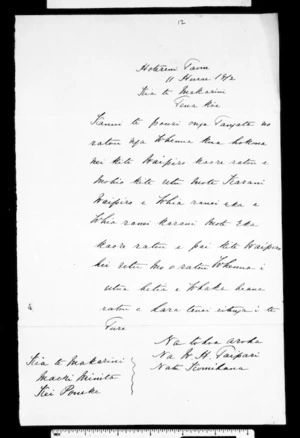 12
Hotereni Taipa
11 Hurae 1872
Kia te Makarini
Tena koe
Kanui te pouri o nga Tangata no
ratou nga Whenua kua hokona
nei kite Waipiro kaore ratou e
Mohio kite utu mote Karani
Waipiro e Whia ranei aka e
Whia ranei karani mote eka
kaore ratou e pai kite Waipiro
hei utu mo o ratou Whenua i
utua hetia e Whaka haua
ratou e hara tenei ritenga i te
Ture
Na to hoa aroha
Na W. H. Taipari
Nate Komihana
Kia te Makarini
Maori Minita
Kei Poneke